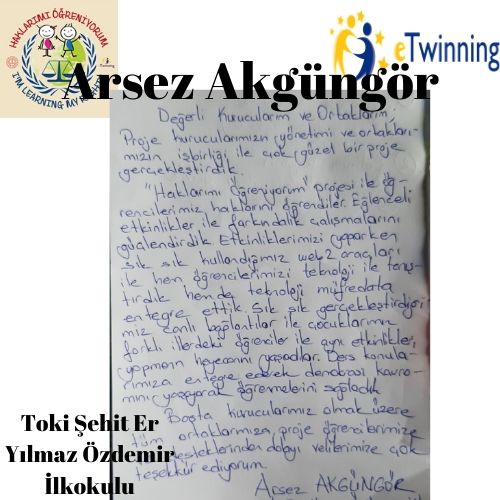 HAKLARIMI ÖĞRENİYORUM
I'M LEARNING MY
eTwinning
Arsez Akgüngör
Değerli Kurucularım ve Ortaklarım,
Proje kurucularımızın yönetimi ve ortakları-
mızın işbirliği ile çok güzel bir proje
gerçekleştirdik.
"Haklarımı Öğreniyorum" projesi ile öğ-
rencilerimiz haklarını öğrendiler. Eğlenceli
etkinlikler ile farkındalık çalışmalarını
güçlendirdik. Etkinliklerimizi yaparken
sık sık kullandığımız web2 araçları
ile hem öğrencilerimizi teknoloji ile tanış-
tırdık hem de teknoloji müfredata
entegre ettik. Sık sık gerçekleştirdiği-
miz canlı bağlantılar ile çocuklarımız
farklı illerdeki öğrenciler ile aynı etkinlikleri
yapmanın heyecanını yaşadılar. Ders konula-
rımıza entegre ederek demokrasi kavra-
mını yaşayarak öğrenmelerini sağladık
Başta kurucularımız olmak üzere
tüm ortaklarımıza, proje öğrencilerimize
desteklerinden dolayı velilerimize çok
teşekkür ediyorum.
Arsez AKGÜNGÖR
Toki Şehit Er
Yılmaz Özdemir
İlkokulu